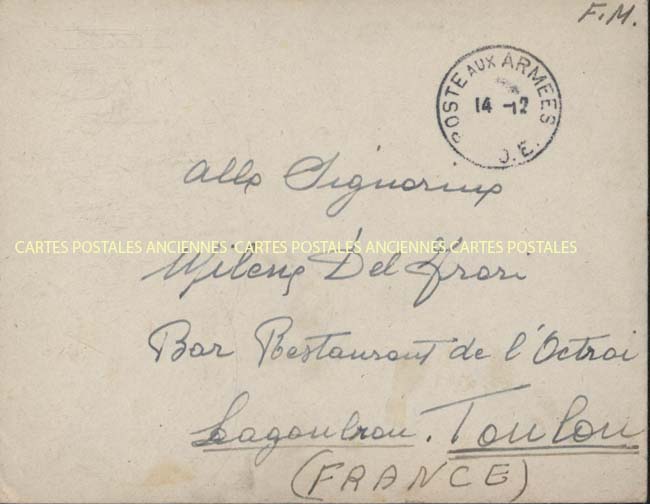 F.M.
POSTE AUX ARMEES
14 -12
O.E.
alla Signorina
CARTES POSTALES ANCIENNES - CARTES POSTALES ANCIENNES CARTES POSTALES
Milena Del Frari
Bar Restaurant de l'Octroi
Lagoubran. Toulon
(FRANCE)